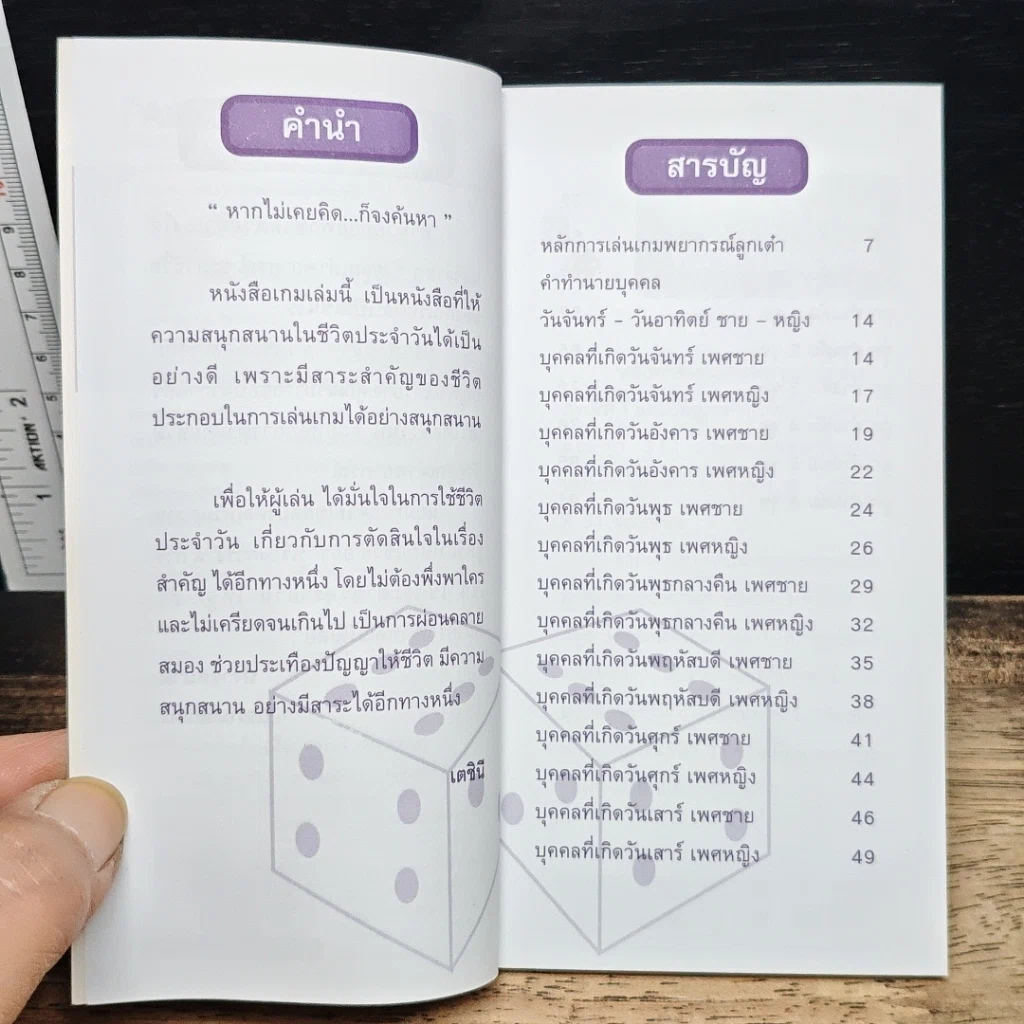 คำนำ
“ หากไม่เคยคิด...ก็จงค้นหา ”
หนังสือเกมเล่มนี้ เป็นหนังสือที่ให้
ความสนุกสนานในชีวิตประจำวันได้เป็น
อย่างดี เพราะมีสาระสำคัญของชีวิต
ประกอบในการเล่นเกมได้อย่างสนุกสนาน
เพื่อให้ผู้เล่น ได้มั่นใจในการใช้ชีวิต
ประจำวัน เกี่ยวกับการตัดสินใจในเรื่อง
สำคัญ ได้อีกทางหนึ่ง โดยไม่ต้องพึ่งพาใคร
และไม่เครียดจนเกินไป เป็นการผ่อนคลาย
สมอง ช่วยประเทืองปัญญาให้ชีวิต มีความ
สนุกสนาน อย่างมีสาระได้อีกทางหนึ่ง
เตชินี
สารบัญ
หลักการเล่นเกมพยากรณ์ลูกเต๋า 7
คำทำนายบุคคล
วันจันทร์ - วันอาทิตย์ ชาย - หญิง 14
บุคคลที่เกิดวันจันทร์ เพศชาย 14
บุคคลที่เกิดวันจันทร์ เพศหญิง 17
บุคคลที่เกิดวันอังคาร เพศชาย 19
บุคคลที่เกิดวันอังคาร เพศหญิง 22
บุคคลที่เกิดวันพุธ เพศชาย 24
บุคคลที่เกิดวันพุธ เพศหญิง 26
บุคคลที่เกิดวันพุธกลางคืน เพศชาย 29
บุคคลที่เกิดวันพุธกลางคืน เพศหญิง 32
บุคคลที่เกิดวันพฤหัสบดี เพศชาย 35
บุคคลที่เกิดวันพฤหัสบดี เพศหญิง 38
บุคคลที่เกิดวันศุกร์ เพศชาย 41
บุคคลที่เกิดวันศุกร์ เพศหญิง 44
บุคคลที่เกิดวันเสาร์ เพศชาย 46
บุคคลที่เกิดวันเสาร์ เพศหญิง 49
9
8
7
6
5
2
1
AKTION